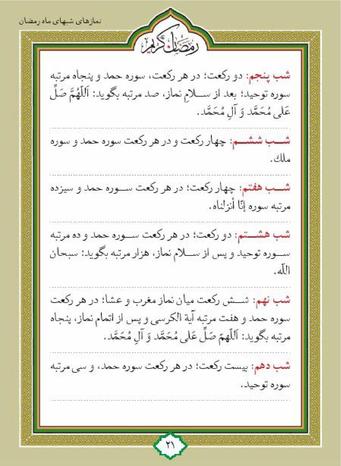 نمازهای شبهای ماه رمضان
رمضان کریم
شب پنجم: دو رکعت؛ در هر رکعت، سوره حمد و پنجاه مرتبه
سوره توحید؛ بعد از سلام نماز، صد مرتبه بگوید: اَللّهُمَّ صَلِّ
عَلی مُحَمَّد وَ آلِ مُحَمَّد.
شب ششم: چهار رکعت و در هر رکعت سوره حمد و سوره
ملك.
شب هفتم: چهار رکعت؛ در هر رکعت سوره حمد و سیزده
مرتبه سوره إنّا أنزلناه.
شب هشتم: دو رکعت؛ در هر رکعت سوره حمد و ده مرتبه
سوره توحید و پس از سلام نماز، هزار مرتبه بگوید: سبحان
الله.
شب نهم: شش رکعت میان نماز مغرب و عشا؛ در هر رکعت
سوره حمد و هفت مرتبه آیة الکرسی و پس از اتمام نماز، پنجاه
مرتبه بگوید: اَللّهمَ صَلِّ عَلی مُحَمَّد وَ آلِ مُحَمَّد.
شب دهم: بیست رکعت؛ در هر رکعت سوره حمد، و سی مرتبه
سوره توحید.
۲۱